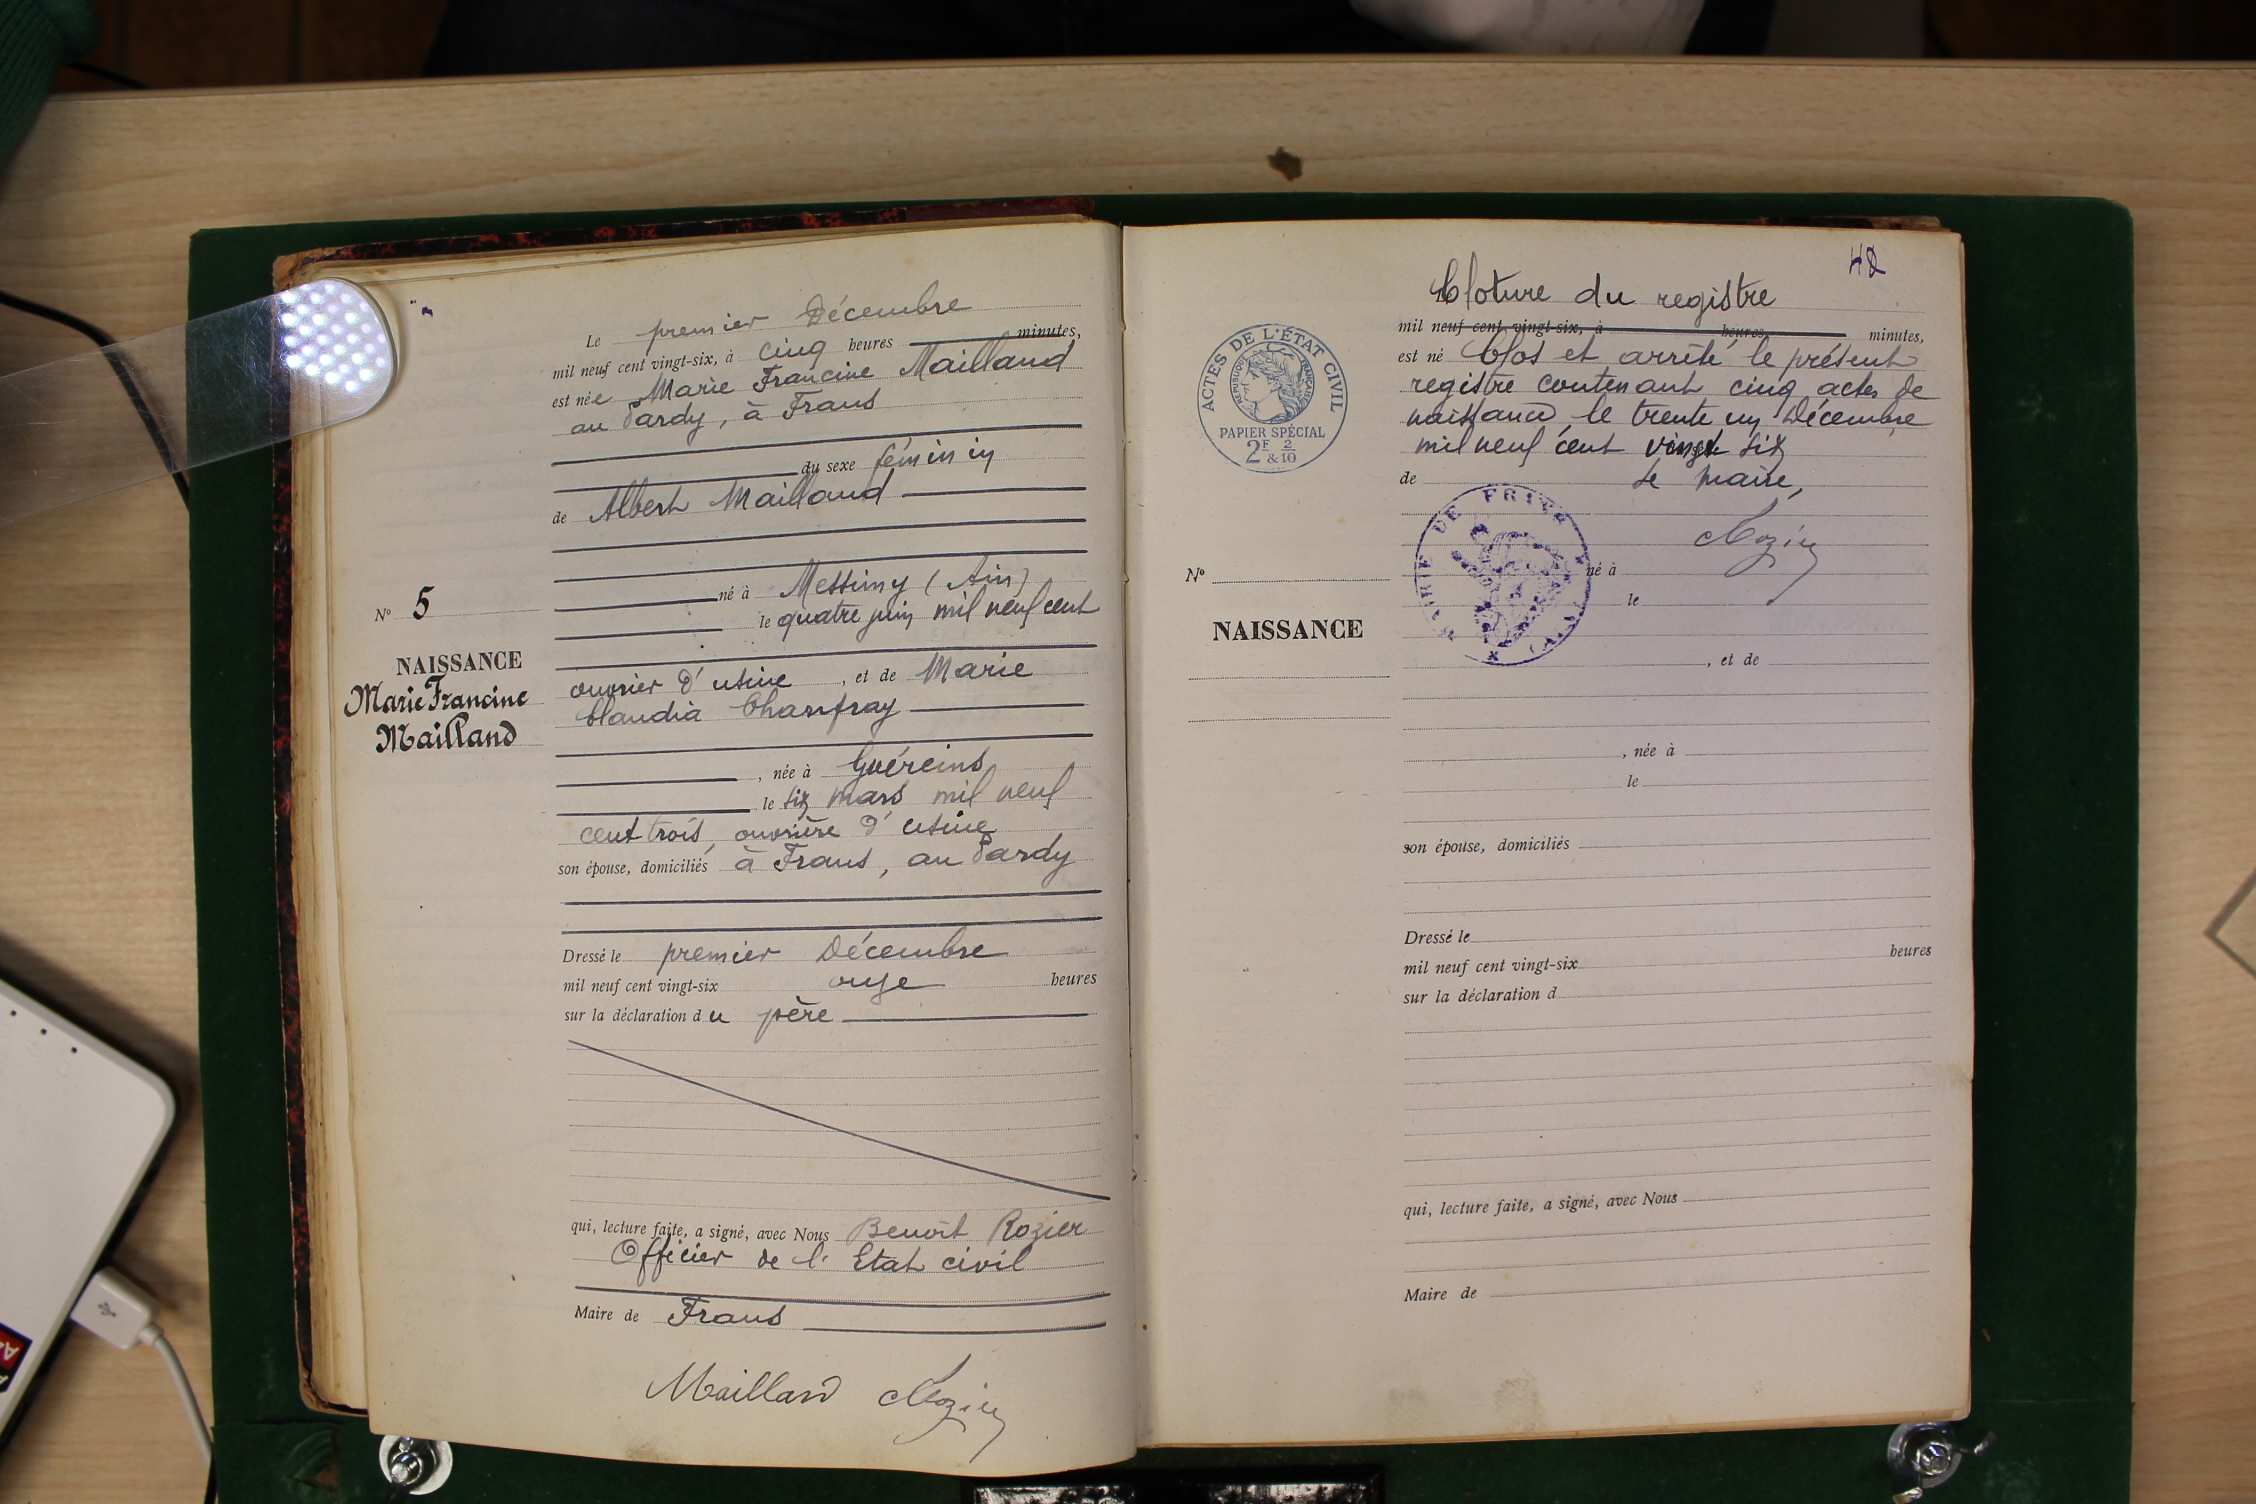 Le premier Décembre
mil neuf cent vingt-six, à cinq heures minutes,
est née Marie Francine Mailland
au Pardy, à Frans
du sexe féminin
de Albert Mailland
né à Messimy (Ain)
le quatre juin mil neuf cent
ouvrier d'usine, et de Marie
Claudia Chanfray
, née à Guéreins
le six mars mil neuf
cent trois, ouvrière d'usine
son épouse, domiciliés à Frans, au Pardy
Dressé le premier Décembre
mil neuf cent vingt-six onze heures
sur la déclaration du père
qui, lecture faite, a signé, avec Nous Benoît Rozier
Officier de l'Etat civil
Maire de Frans
Mailland Rozier
N° 5
NAISSANCE
Marie Francine
Mailland
42
Cloture du registre
mil neuf cent vingt-six, à heures minutes,
est né Clos et arrêté le présent
registre contenant cinq actes de
naissance le trente un Décembre
mil neuf cent vingt six
de Le Maire,
Rozier
ACTES DE L'ÉTAT CIVIL
RÉPUBLIQUE FRANÇAISE
PAPIER SPÉCIAL
2F 2
& 10
MAIRIE DE
né à
le
N°
NAISSANCE
, et de
, née à
le
son épouse, domiciliés
Dressé le
mil neuf cent vingt-six heures
sur la déclaration d
qui, lecture faite, a signé, avec Nous
Maire de